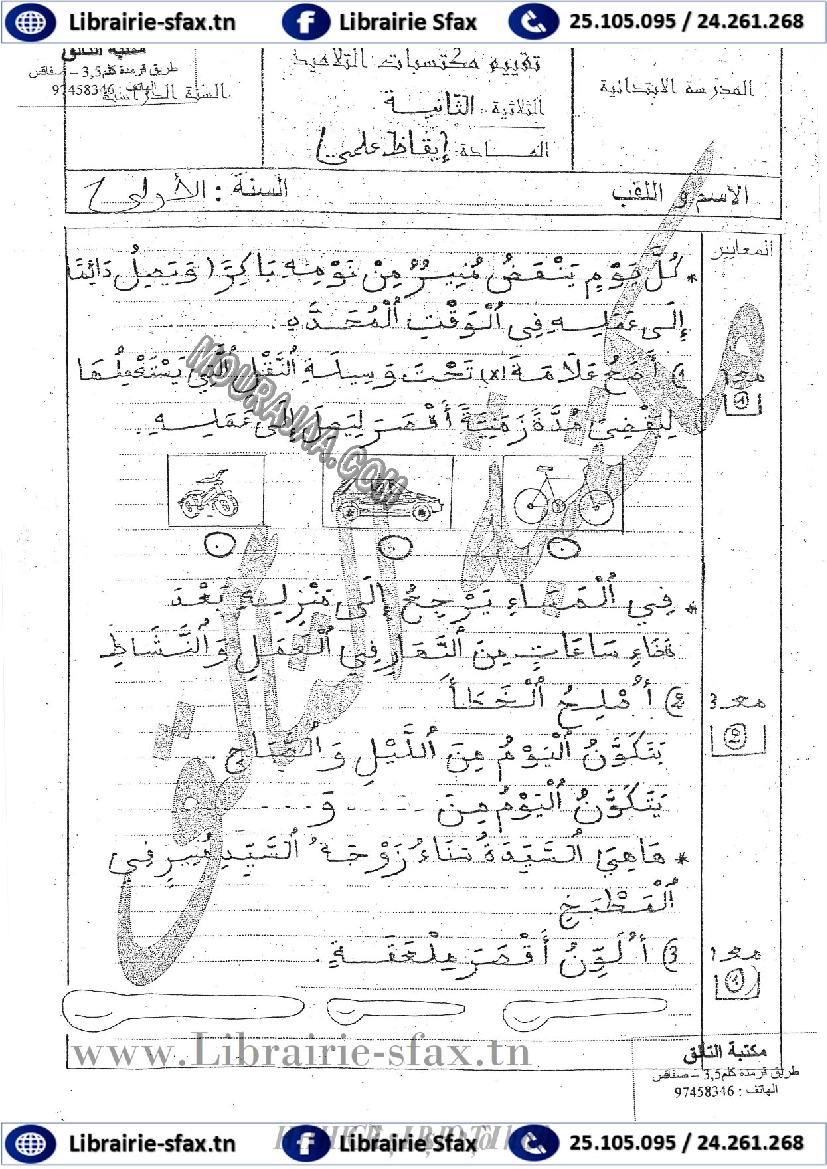 Librairie-sfax.tn Librairie Sfax 25.105.095 / 24.261.268
المدرسة الابتدائية
تقييم مكتسبات التلاميذ
الثلاثية: الثانية
المادة: إيقاظ علمي
مكتبة التألق
طريق قرمدة كلم 3,5 – صفاقس
الهاتف: 97458346
السنة الدراسية
الاسم و اللقب
السنة: الأولى
المعايير
* كُلَّ يَوْمٍ يَنْهَضُ مُنِيرٌ مِنْ نَوْمِهِ بَاكِرًا وَيَصِلُ دَائِمًا
إِلَى عَمَلِهِ فِي الْوَقْتِ الْمُحَدَّدِ.
مع1
1
1) أَضَعُ عَلَامَةَ (x) تَحْتَ وَسِيلَةِ النَّقْلِ الَّتِي يَسْتَعْمِلُهَا
لِيَقْضِيَ مُدَّةً زَمَنِيَّةً أَقْصَرَ لِيَصِلَ إِلَى عَمَلِهِ.
MOURAJAA.COM
* فِي الْمَسَاءِ يَرْجِعُ إِلَى مَنْزِلِهِ بَعْدَ
قَضَاءِ سَاعَاتٍ مِنَ النَّهَارِ فِي الْعَمَلِ وَالنَّشَاطِ
مع3
2
2) أُصْلِحُ الْخَطَأَ
يَتَكَوَّنُ الْيَوْمُ مِنَ اللَّيْلِ وَالصَّبَاحِ
يَتَكَوَّنُ الْيَوْمُ مِنَ ..... وَ .....
* هَاهِيَ السَّيِّدَةُ سَنَاءُ زَوْجَةُ السَّيِّدِ مُنِيرٍ فِي
الْمَطْبَخِ
مع1
1
3) أُلَوِّنُ أَقْصَرَ مِلْعَقَةٍ.
www.Librairie-sfax.tn
مكتبة التألق
طريق قرمدة كلم 3,5 – صفاقس
الهاتف: 97458346
Librairie-sfax.tn Librairie Sfax 25.105.095 / 24.261.268